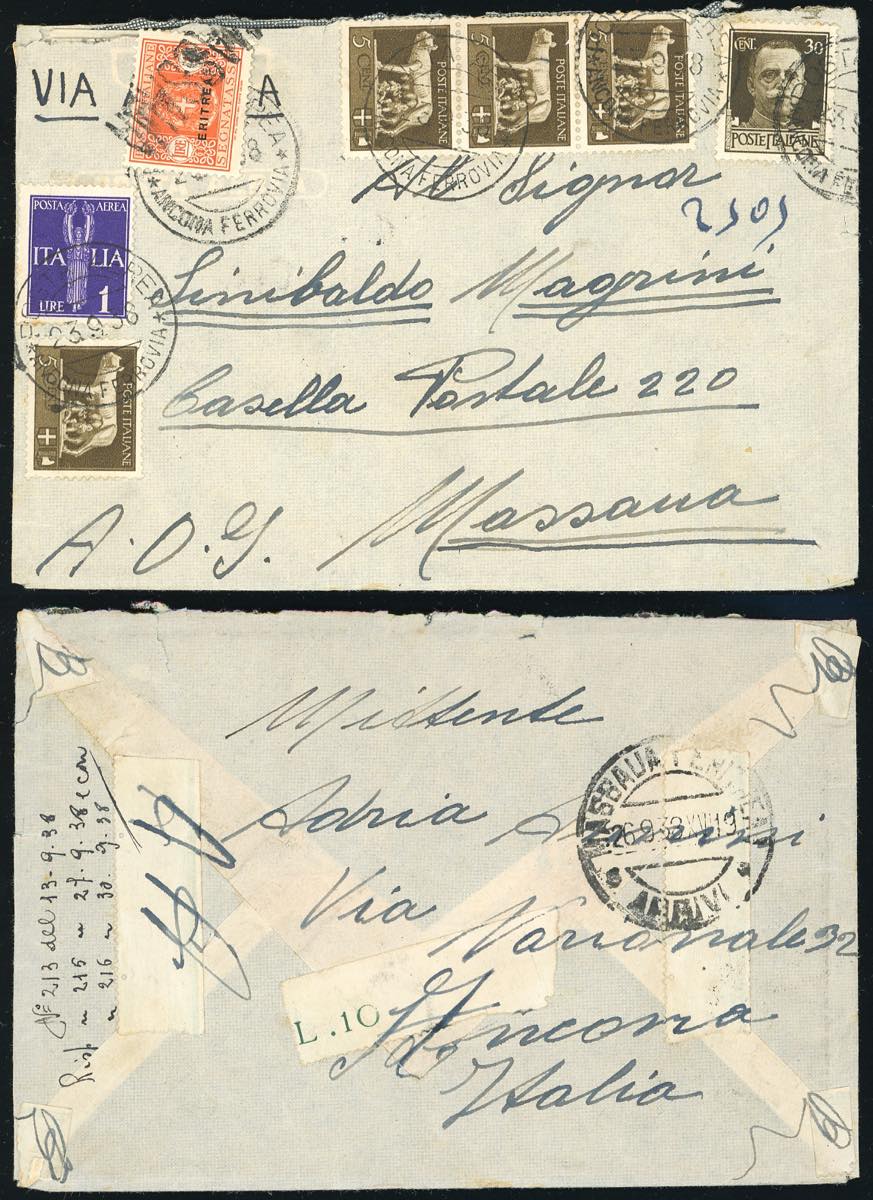 VIA
A
SEGNATASSE
ERITREA
ANCONA FERROVIA
5 CENT
POSTE ITALIANE
5 CENT
POSTE ITALIANE
5 CENT
POSTE ITALIANE
CENT. 30
POSTE ITALIANE
FERROVIA
POSTA AEREA
ITALIA
LIRE 1
23.9.38
5
POSTE ITALIANE
All Signor
2505
Sinibaldo Magrini
Casella Postale 220
A.O.I. Massaua
Mittente
Adria
Via Nazionale 32
Ancona
Italia
MASSAUA (ERITREA)
26.9.38 XVI 19
ARRIVI
L.10
Nº 213 del 13.9.38
Risp " 215 " 27.9.38 e con
" 216 " 30.9.38